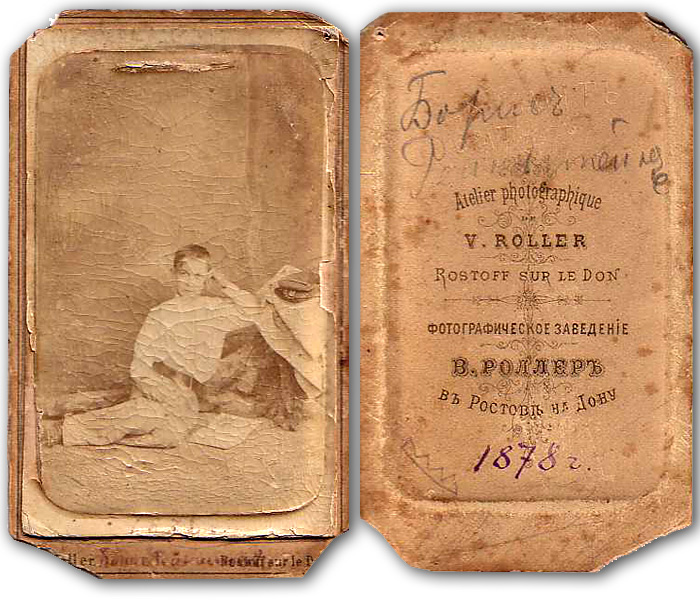 Roller
Rostoff sur le D
Борисъ
Atelier photographique
DE
V. ROLLER
ROSTOFF SUR LE DON
ФОТОГРАФИЧЕСКОЕ ЗАВЕДЕНІЕ
В. РОЛЛЕРЪ
ВЪ РОСТОВѢ НА ДОНУ
1878 г.